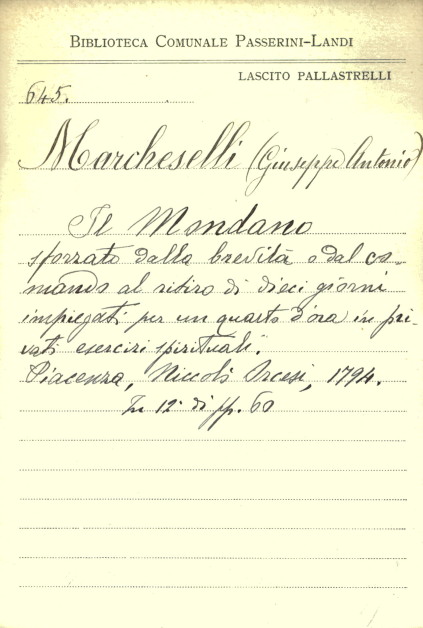 BIBLIOTECA COMUNALE PASSERINI-LANDI
LASCITO PALLASTRELLI
645.
Marcheselli (Giuseppe Antonio)
Il Mondano
sforzato dalla brevità o dal co-
mando al ritiro di dieci giorni
impiegati per un quarto d'ora in pri-
vati esercizi spirituali.
Piacenza, Niccolò Orcesi, 1794.
In 12° di pp. 60